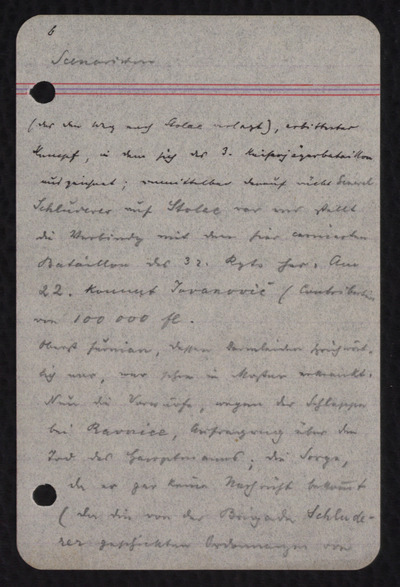 6
Scenarium
(der den Weg nach Stolac verlegt), erbitterter
Kampf, in dem sich das 3. Kaiserjägerbataillon
auszeichnet; unmittelbar darauf rückt General
Schluderer auf Stolac vor und stellt
die Verbindg mit dem hier cernierten
Bataillon des 32. Rgts her. Am
22. kommt Jovanović (Contribution
von 100 000 fl.
Oberst dessen
lich war, war schon in Mostar erkrankt.
Nun die Vorwürfe, wegen der Schlappe
bei Ravnice, Aufregung über den
Tod des Hauptmanns; die Sorge,
da er gar keine Nachricht bekommt
(da die von der Brigade Schlude-
rer geschickten Ordonnanzen von